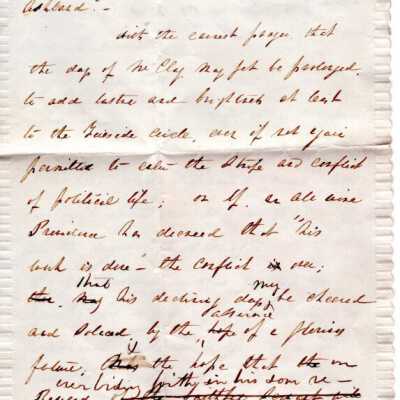 Ashland" -
with the earnest prayer that
the day of Mr Clay may yet be prolonged,
to add lustre and brightness at least
to the fireside circle, even if not again
permitted to enter the strife and conflict
of political life; or if an all wise
Providence has decreed that "his
work is done" - the conflict is over;
that may
his declining days be cheered
assurance
and solaced, by the hope of a glorious
future, & the hope that
in his son re-